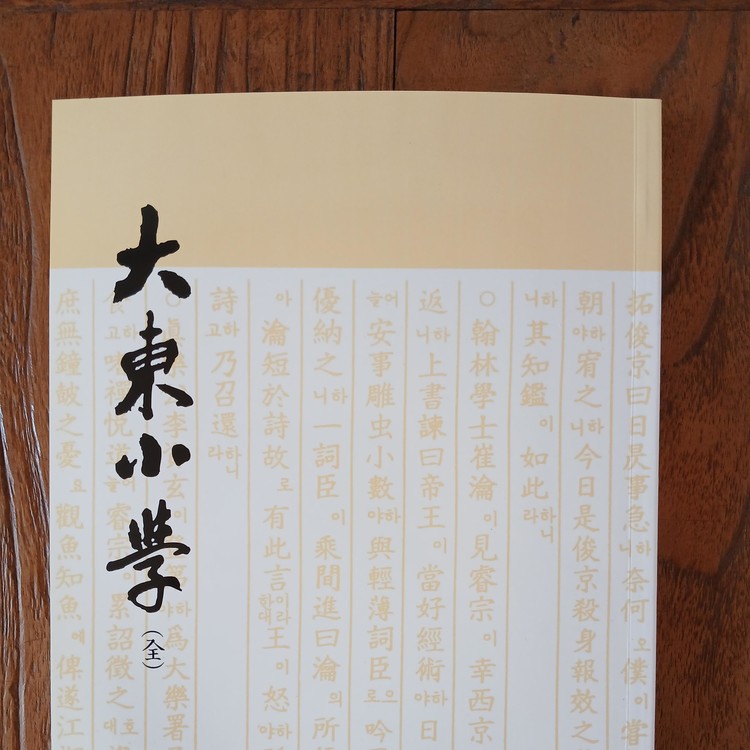 大東小學
(全)
拓俊京曰日昃事急하니奈何오僕이嘗
朝하야宥之하니今日是俊京殺身報效之
하니其知鑑이如此하니라
○翰林學士崔瀹이見睿宗이幸西京
返하니上書諫曰帝王이當好經術하야日
어늘安事雕虫小數하야與輕薄詞臣으로吟
優納之하니一詞臣이乘間進曰瀹의所
아瀹短於詩故로有此言이라한대王이怒하야
詩하고乃召還하니라
○眞樂李玄爲大樂署
食하고禪悅道睿宗이累詔徵之호대
庶無鐘皷之憂요觀魚知魚에俾遂江